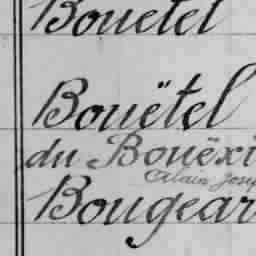 Bouëtel
Bouëtel
du Bouëxi
Alain Josep
Bougear